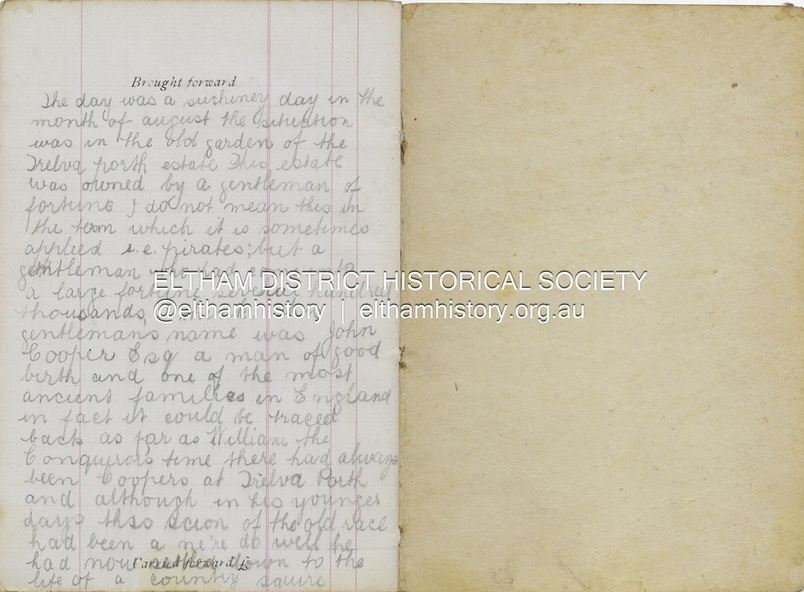 Brought forward
The day was a sushiney day in the
month of august the situation
was in the old garden of the
Trelva porth estate This estate
was owned by a gentleman of
fortune I do not mean this in
the term which it is sometimes
applied i.e. pirates; but a
gentleman who had
ELTHAM DISTRICT HISTORICAL SOCIETY
a large fortune several hundred
thousands
@elthamhistory | elthamhistory.org.au
gentlemans name was John
Cooper Esq a man of good
birth and one of the most
ancient families in England
in fact it could be traced
back as far as William the
Conquerors time there had always
been Coopers at Trelva Porth
and although in his younger
days this scion of the old race
had been a ne're do well he
had now settled down to the
Carried forward £
life of a country squire